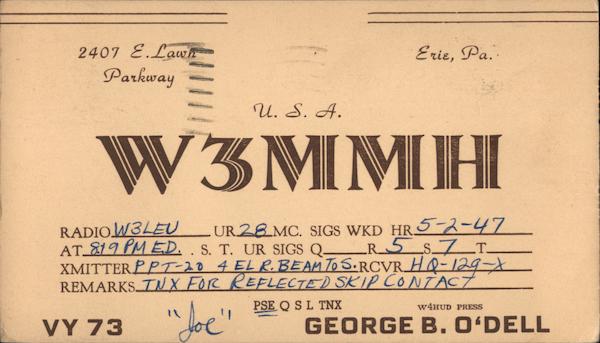 2407 E. Lawn Erie, Pa.
Parkway
U. S. A.
W3MMH
RADIO W3LEU UR 28 MC. SIGS WKD HR 5-2-47
AT 819 PM ED. . S. T. UR SIGS Q R 5 S 7 T
XMITTER PPT-20 4 EL R. BEAM TO S. RCVR HQ-129-X
REMARKS TNX FOR REFLECTED SKIP CONTACT
PSE Q S L TNX W4HUD PRESS
VY 73 "Joe" GEORGE B. O'DELL